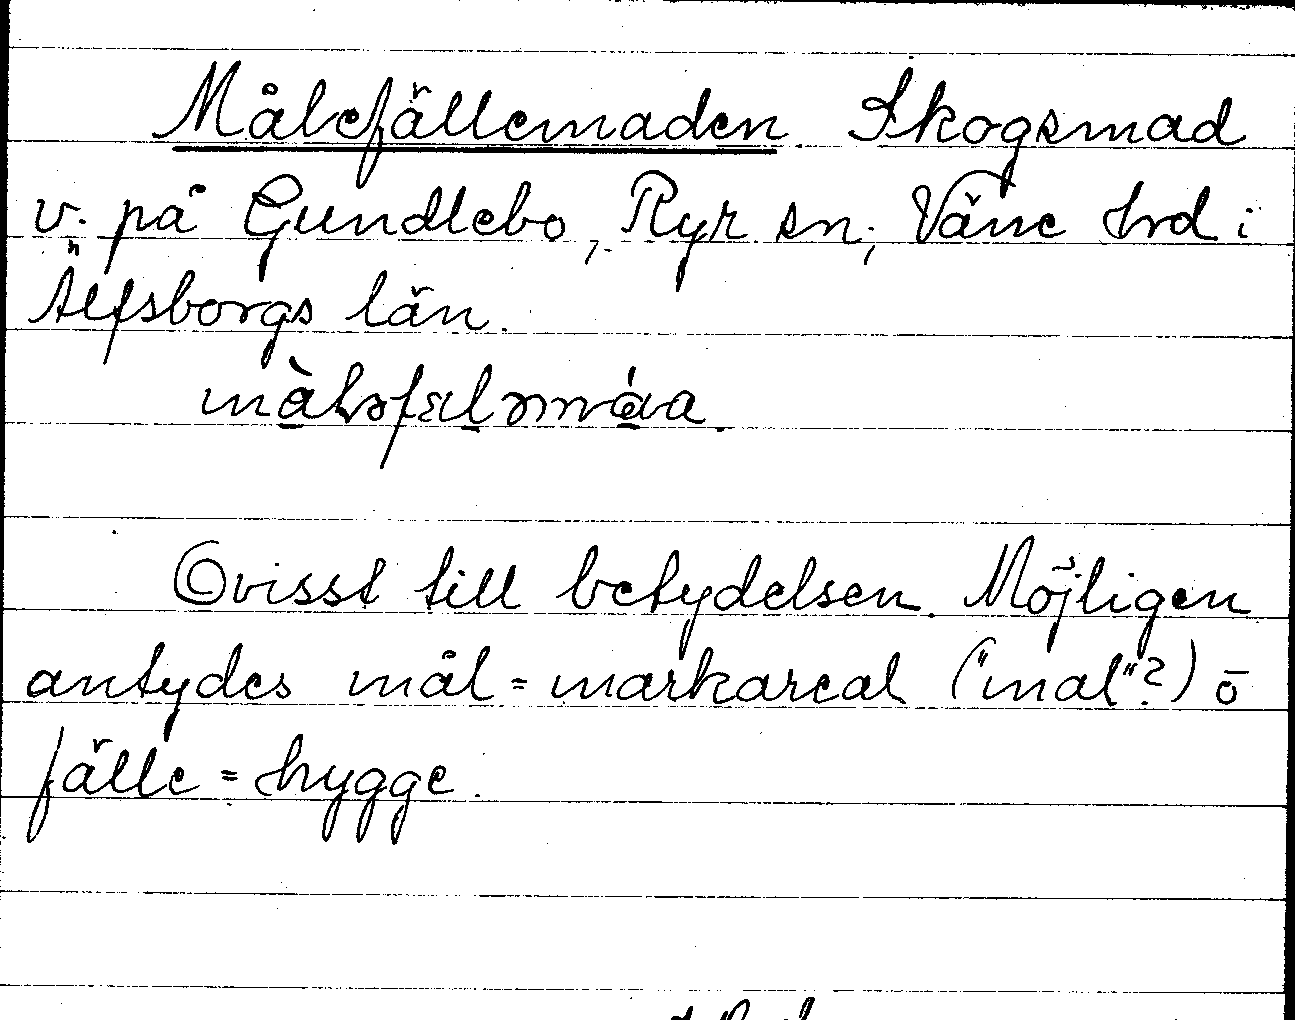 Målefällemaden. Skogsmad
v. på Gundlebo, Ryr sn, Väne hrd i
Älfsborgs län.
Ovisst till betydelsen. Möjligen
antydes mål = markareal ("mal"?) o
fälle = hygge.